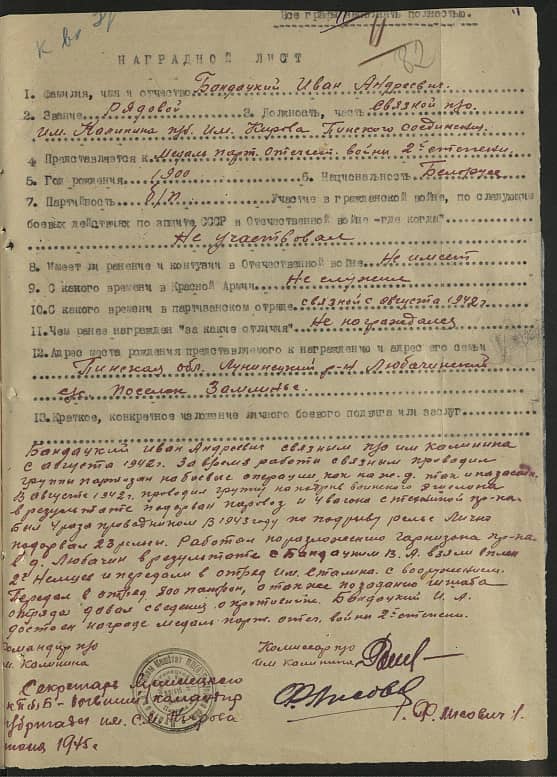 Все графы заполнять полностью.
82
НАГРАДНОЙ ЛИСТ
1. Фамилия, имя и отчество Бандацкий Иван Андреевич
2. Звание рядовой 3. Должность, часть связной п/о
им. Калинина п/б. им. Кирова Пинского соединения.
4. Представляется к Медали парт. Отечест. войны 2й степени.
5. Год рождения 1900 6. Национальность Белорус
7. Партийность б/п. Участие в гражданской войне, по следующим
боевых действиях по защите СССР в Отечественной войне -где когда"
Не участвовал
8. Имеет ли ранение и контузии в Отечественной войне Не имеет
9. С какого времени в Красной Армии Не служил
10. С какого времени в партизанском отряде связной с августа 1942 г
11. Чем ранее награжден "за какие отличия" Не награждался
12. Адрес места рождения представляемого к награждению и адрес его семьи
Пинская обл. Лунинецкий р-н Любачинский
Поселок
13. Краткое, конкретное изложение личного боевого подвига или заслуг
Бандацкий Иван Андреевич связным п/о им калинина
с августа 1942 г. За время работы связным проводил
группы партизан на боевые операции как на ж.д. так и на засады.
В августе 1942 г. проводил группу на подрыв воинского эшелона
в результате подорван паровоз и 4 вагона с техникой пр-ка.
Был 4 раза проводником в 1943 году по подрыву рельс Лично
подорвал 23 рельсы. Работал по разложению гарнизона пр-ка
в д. Любачин в результате с Бандацким В.А. взяли в плен
2х Немцев и передали в отряд им. Сталина. с вооружением.
Передал в отряд 900 патрон, а также по заданию штаба
отряда давал сведения о противнике. Бандацкий И. А.
достоен награде медали парт. отеч. войны 2й степени.
Командир п/о
им. Калинина
Комиссар п/о
им калинина
Секретарь Лунинецкого
КПбБ - бывший командир
п/бригады им. С.М. Кирова
Ф. Лисович
июня 1945 г